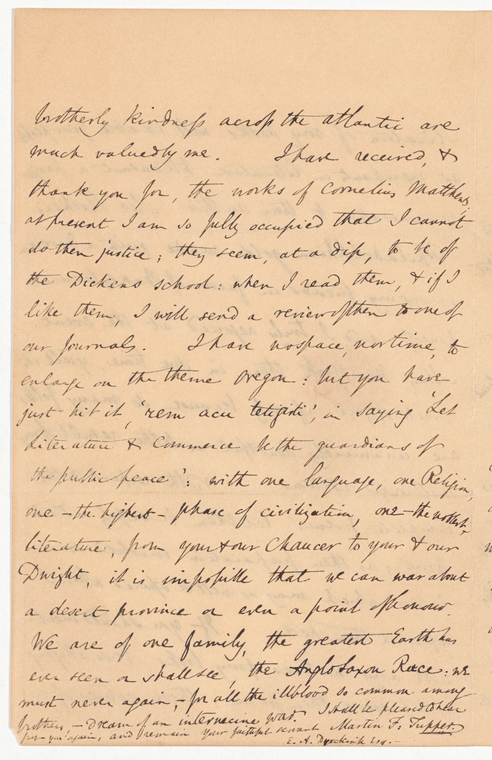 brotherly kindness across the atlantic are
much valued by me. I have received, &
thank you for, the works of Cornelius Matthews
at present I am so fully occupied that I cannot
do them justice; they seem, at a dip, to be of
the Dickens school: when I read them, & if I
like them, I will send a review of them to one of
our Journals. I have no space, nor time, to
enlarge on the theme Oregon: but you have
just hit it, 'rem acu tetigisti', in saying 'Let
Literature & Commerce be the guardians of
the public peace': with one language, one Religion,
one – the highest – phase of civilization, one – the noblest,
literature, from your & our Chaucer to your & our
Dwight, it is impossible that we can war about
a desert province or even a point of honour.
We are of one family, the greatest Earth has
ever seen or shall see, the Anglo Saxon Race: we
must never again, – for all the ill blood so common among
brothers, – Dream of an internecine war. I shall be pleased to hear
from you again, and remain your faithful servant Martin F. Tupper.
E. A. Duyckinck Esq. –